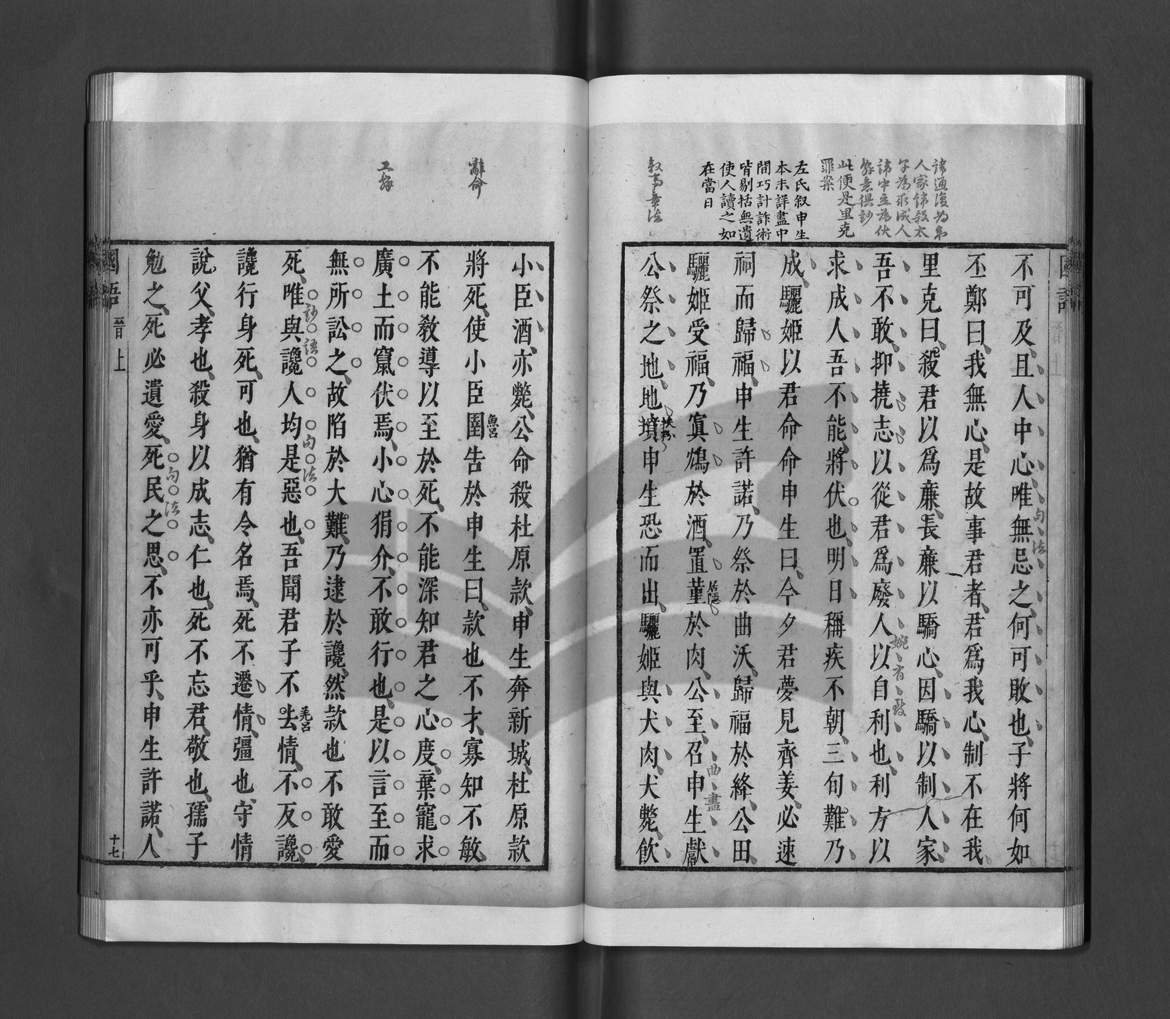 不可及且人中心唯無忌之何可敗也子將何如
丕鄭曰我無心是故事君者君爲我心制不在我
里克曰殺君以爲廉長廉以驕心因驕以制人家
吾不敢抑撓志以從君爲廢人以自利也利方以
求成人吾不能將伏也明日稱疾不朝三旬難乃
成驪姬以君命命申生曰今夕君夢見齊姜必速
祠而歸福申生許諾乃祭於曲沃歸福於絳公田
驪姬受福乃寘鴆於酒置堇於肉公至召申生獻
公祭之地地墳申生恐而出驪姬與犬肉犬斃飲
句法
婉有致
曲盡
左氏叙申生
本末詳盡中
間巧計詐術
皆剔括無遺
使人讀之如
在當日
此便是里克
罪案
叙事妻法
小臣酒亦斃公命殺杜原款申生奔新城杜原款
將死使小臣圉告於申生曰款也不才寡知不敏
不能敎導以至於死不能深知君之心度棄寵求
廣土而竄伏焉小心狷介不敢行也是以言至而
無所訟之故陷於大難乃逮於讒然款也不敢愛
死唯與讒人均是惡也吾聞君子不去情不反讒
讒行身死可也猶有令名焉死不遷情彊也守情
說父孝也殺身以成志仁也死不忘君敬也孺子
勉之死必遺愛死民之思不亦可乎申生許諾人
辭命
妙語
句法
句法
國語
晉上
十七